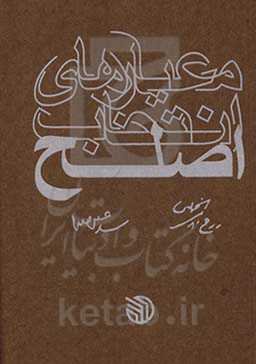 معیارهای
انتخاب
اصلح
خانه کتاب و ادبیات ایران
ketab.ir